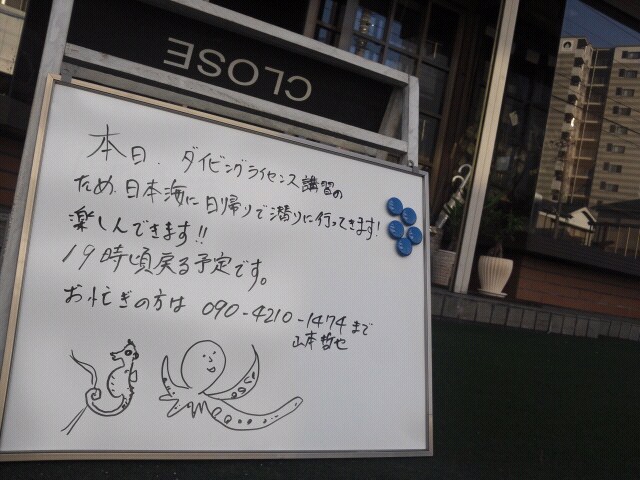 CLOSE
本日、ダイビングライセンス講習の
ため、日本海に日帰りで潜りに行ってきます!
楽しんできます!!
19時頃戻る予定です。
お忙ぎの方は 090-4210-1474まで
山本哲也